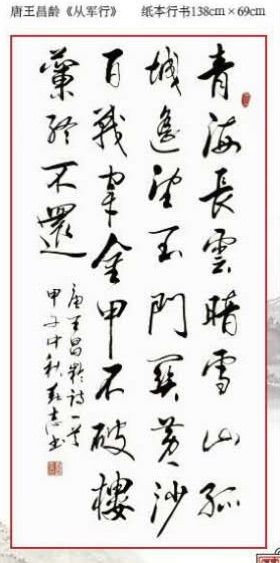 唐王昌龄《从军行》 纸本行书138cm×69cm
青海長雲暗雪山孤
城遥望玉門關黄沙
百戰穿金甲不破樓
蘭終不還
唐王昌齡詩一首
甲子中秋志书